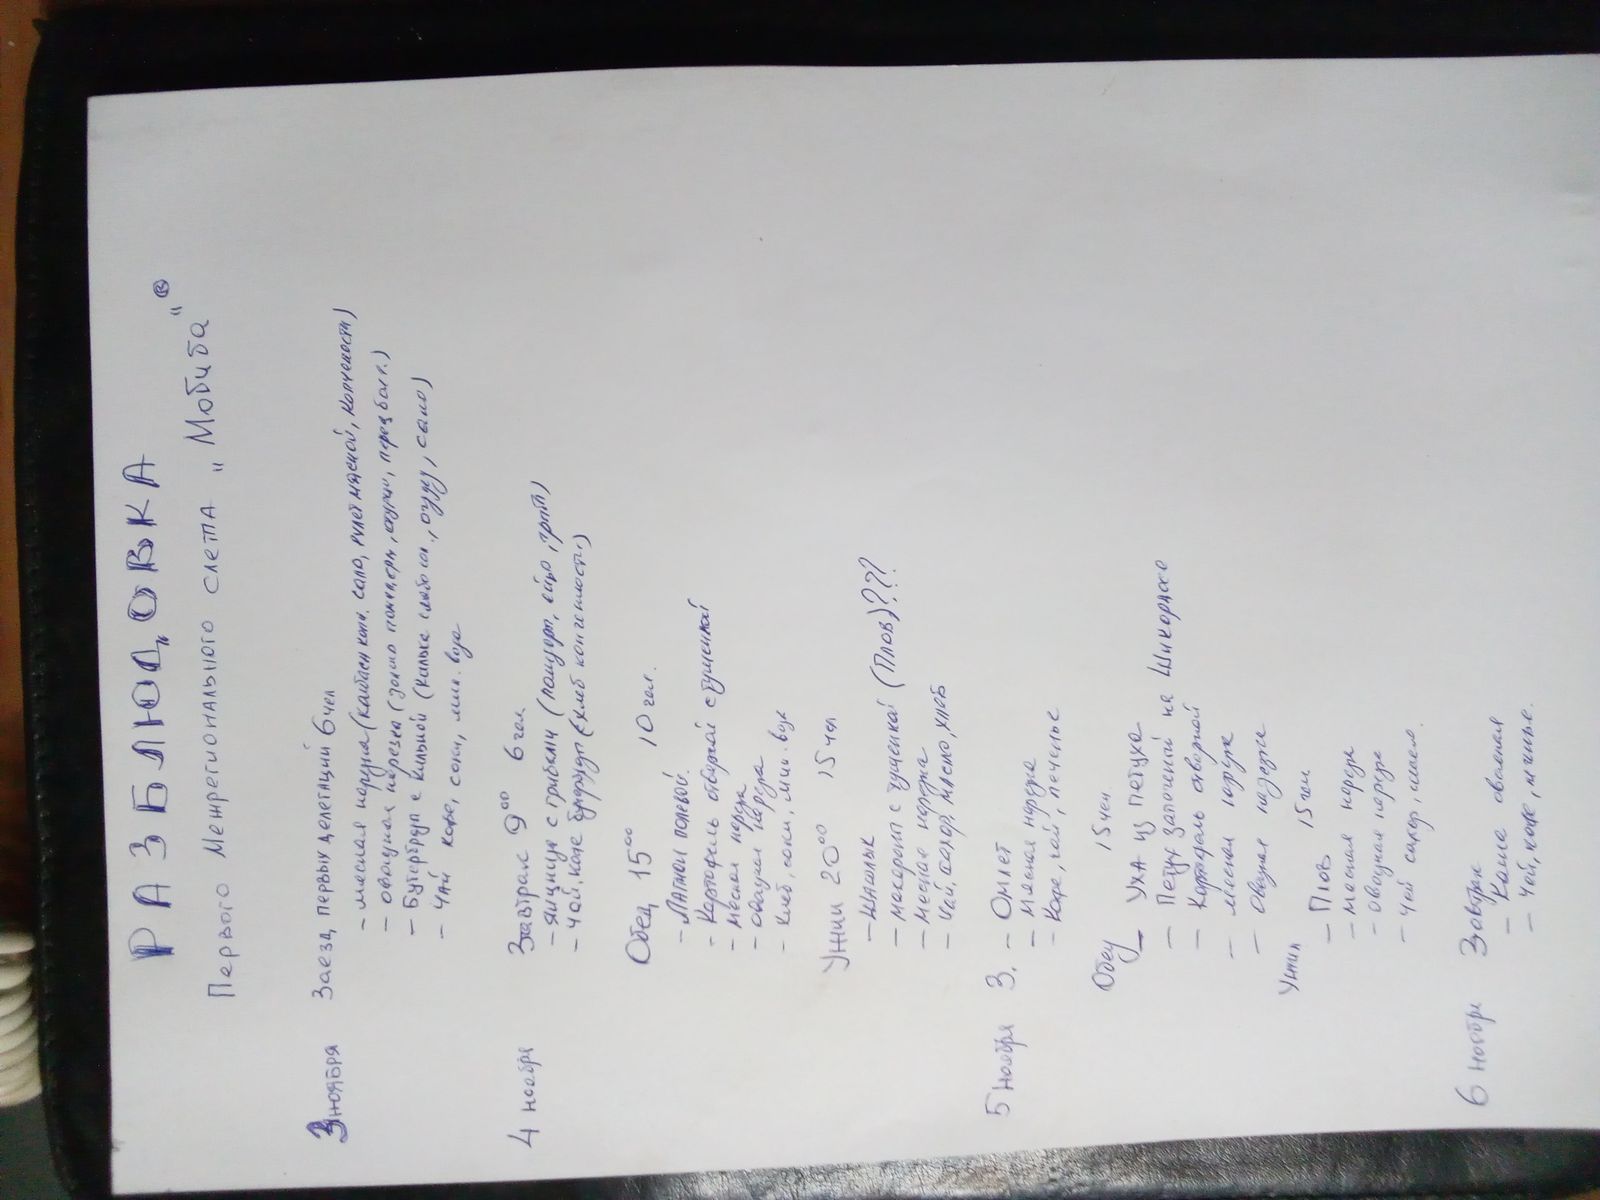 РАЗБЛЮДОВКА
Первого Межрегионального слета „Мобиба"®
3 ноября Заезд первых делегаций 6 чел
– мясная нарезка (кабан копч. сало, рулет мясной, копчености)
– овощная нарезка ( помидоры, огурцы, перец болг.)
– Бутерброд с килькой (килька слабосол., огурец, сыло)
– чай кофе, соки, мин. вода
4 ноября Завтрак 9⁰⁰ 6 чел
– яичница с грибами (помидоры, яйцо, грибы)
– чай, кофе бутерброды (хлеб копчености)
Обед 15⁰⁰ 10 чел.
– Лагман полевой.
– Картофель отварной с тушенкой
– мясная нарезка
– овощная нарезка
– хлеб, соки, мин. вода
Ужин 20⁰⁰ 15 чел
– Шашлык (Плов)???
– макароны с тушенкой
– мясная нарезка
– чай, сахар, масло, хлеб
5 ноября З. – Омлет
– мясная нарезка
– Кофе, чай, печенье
Обед 15 чел.
– Уха из петуха
– Петух запеченый на Шикордосе
– Картофель отварной
– мясная нарезка
– овощная нарезка
Ужин 15 чел
– Плов
– мясная нарезка
– овощная нарезка
– чай сахар, масло
6 ноября Завтрак
– Каша овсяная
– чай, кофе, печенье.